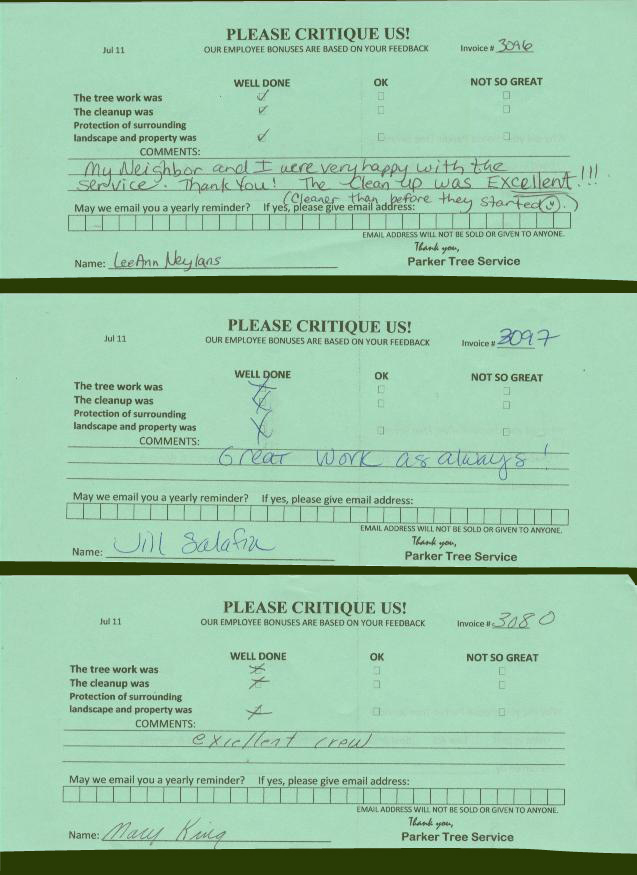 PLEASE CRITIQUE US!
Jul 11 OUR EMPLOYEE BONUSES ARE BASED ON YOUR FEEDBACK Invoice # 3096
WELL DONE OK NOT SO GREAT
The tree work was
The cleanup was
Protection of surrounding
landscape and property was
COMMENTS:
My Neighbor and I were very happy with the
service. Thank You! The Clean up was EXCellent!!!
(Cleaner than before they started.)
May we email you a yearly reminder? If yes, please give email address:
EMAIL ADDRESS WILL NOT BE SOLD OR GIVEN TO ANYONE.
Thank you,
Name: LeeAnn Neylans Parker Tree Service
PLEASE CRITIQUE US!
Jul 11 OUR EMPLOYEE BONUSES ARE BASED ON YOUR FEEDBACK Invoice # 3097
WELL DONE OK NOT SO GREAT
The tree work was
The cleanup was
Protection of surrounding
landscape and property was
COMMENTS:
Great work as always!
May we email you a yearly reminder? If yes, please give email address:
EMAIL ADDRESS WILL NOT BE SOLD OR GIVEN TO ANYONE.
Thank you,
Name: Jill Salafia Parker Tree Service
PLEASE CRITIQUE US!
Jul 11 OUR EMPLOYEE BONUSES ARE BASED ON YOUR FEEDBACK Invoice #: 3080
WELL DONE OK NOT SO GREAT
The tree work was
The cleanup was
Protection of surrounding
landscape and property was
COMMENTS:
excellent crew
May we email you a yearly reminder? If yes, please give email address:
EMAIL ADDRESS WILL NOT BE SOLD OR GIVEN TO ANYONE.
Thank you,
Name: Mary King Parker Tree Service